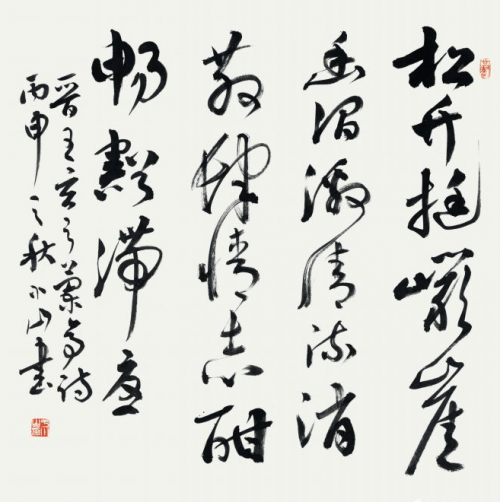 松竹挺巖崖
幽澗激清流消
散肆情志酣
暢豁滯憂
晉王玄之蘭亭詩
丙申之秋小山書